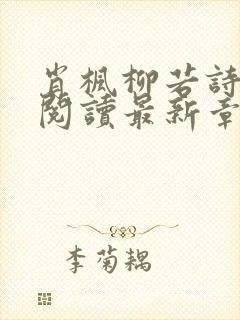 肖楓柳若詩
閱讀最新章
李菊耦